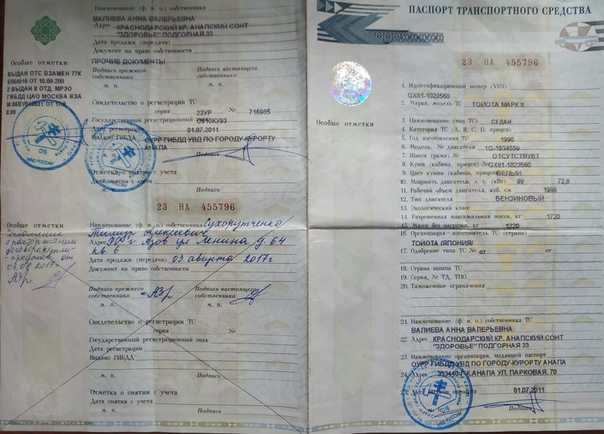 Наименование (ф. и. о.) собственника
ВАЛИЕВА АННА ВАЛЕРЬЕВНА
Адрес КРАСНОДАРСКИЙ КР. АНАПСКИЙ СОНТ
"ЗДОРОВЬЕ" ПОДГОРНАЯ 33
Дата продажи (передачи)
Документ на право собственности
ПРОЧИЕ ДОКУМЕНТЫ
Подпись прежнего собственника
Подпись настоящего собственника
М. П.
М. П.
Свидетельство о регистрации ТС
серия 23УР № 716985
Государственный регистрационный знак
Дата регистрации 01.07.2011
Выдано ГИБДД ОУРР ГИБДД УВД ПО ГОРОДУ-КУРОРТУ
АНАПА
М. П.
Подпись
Отметка о снятии с учета
Дата снятия с учета
М. П.
Подпись
Особые отметки
ВЫДАН ПТС ВЗАМЕН 77К
2 ВЫДАН 8 ОТД. МРЭО
ГИБДД ЦАО МОСКВА
23 НА 455796
Особые отметки
Наименование (ф. и. о.) собственника Сухорутченко
Адрес г. Азов ул Ленина д 64
кв 6
Дата продажи (передачи) 03 августа 2017г
Документ на право собственности
Подпись прежнего собственника
Подпись настоящего собственника
М. П.
М. П.
Свидетельство о регистрации ТС
серия №
Государственный регистрационный знак
Дата регистрации
Выдано ГИБДД
М. П.
Подпись
Отметка о снятии с учета
Дата снятия с учета
М. П.
Подпись
ПАСПОРТ ТРАНСПОРТНОГО СРЕДСТВА
23 НА 455796
Особые отметки
1. Идентификационный номер (VIN)
GX81-1823560
2. Марка, модель ТС ТОЙОТА МАРК II
3. Наименование (тип ТС) СЕДАН
4. Категория ТС (А, В, С, D, прицеп)
5. Год изготовления ТС
6. Модель, № двигателя
7. Шасси (рама) № ОТСУТСТВУЕТ
8. Кузов (кабина, прицеп) № GX81-1823560
9. Цвет кузова (кабины, прицепа) БЕЛЫЙ
10. Мощность двигателя, л. с. (кВт)
11. Рабочий объем двигателя, куб. см 1988
12. Тип двигателя БЕНЗИНОВЫЙ
13. Экологический класс
14. Разрешенная максимальная масса, кг 1720
15. Масса без нагрузки, кг
16. Организация-изготовитель ТС (страна)
ТОЙОТА ЯПОНИЯ
17. Одобрение типа ТС №
18. Страна вывоза ТС
19. Серия, № ТД, ТПО
20. Таможенные ограничения
21. Наименование (ф. и. о.) собственника ТС
ВАЛИЕВА АННА ВАЛЕРЬЕВНА
22. Адрес КРАСНОДАРСКИЙ КР. АНАПСКИЙ СОНТ
"ЗДОРОВЬЕ" ПОДГОРНАЯ 33
23. Наименование организации, выдавшей паспорт
ОУРР ГИБДД УВД ПО ГОРОДУ-КУРОРТУ АНАПА
24. Адрес Г. АНАПА УЛ. ПАРКОВАЯ, 70
01.07.2011
М. П.
Подпись